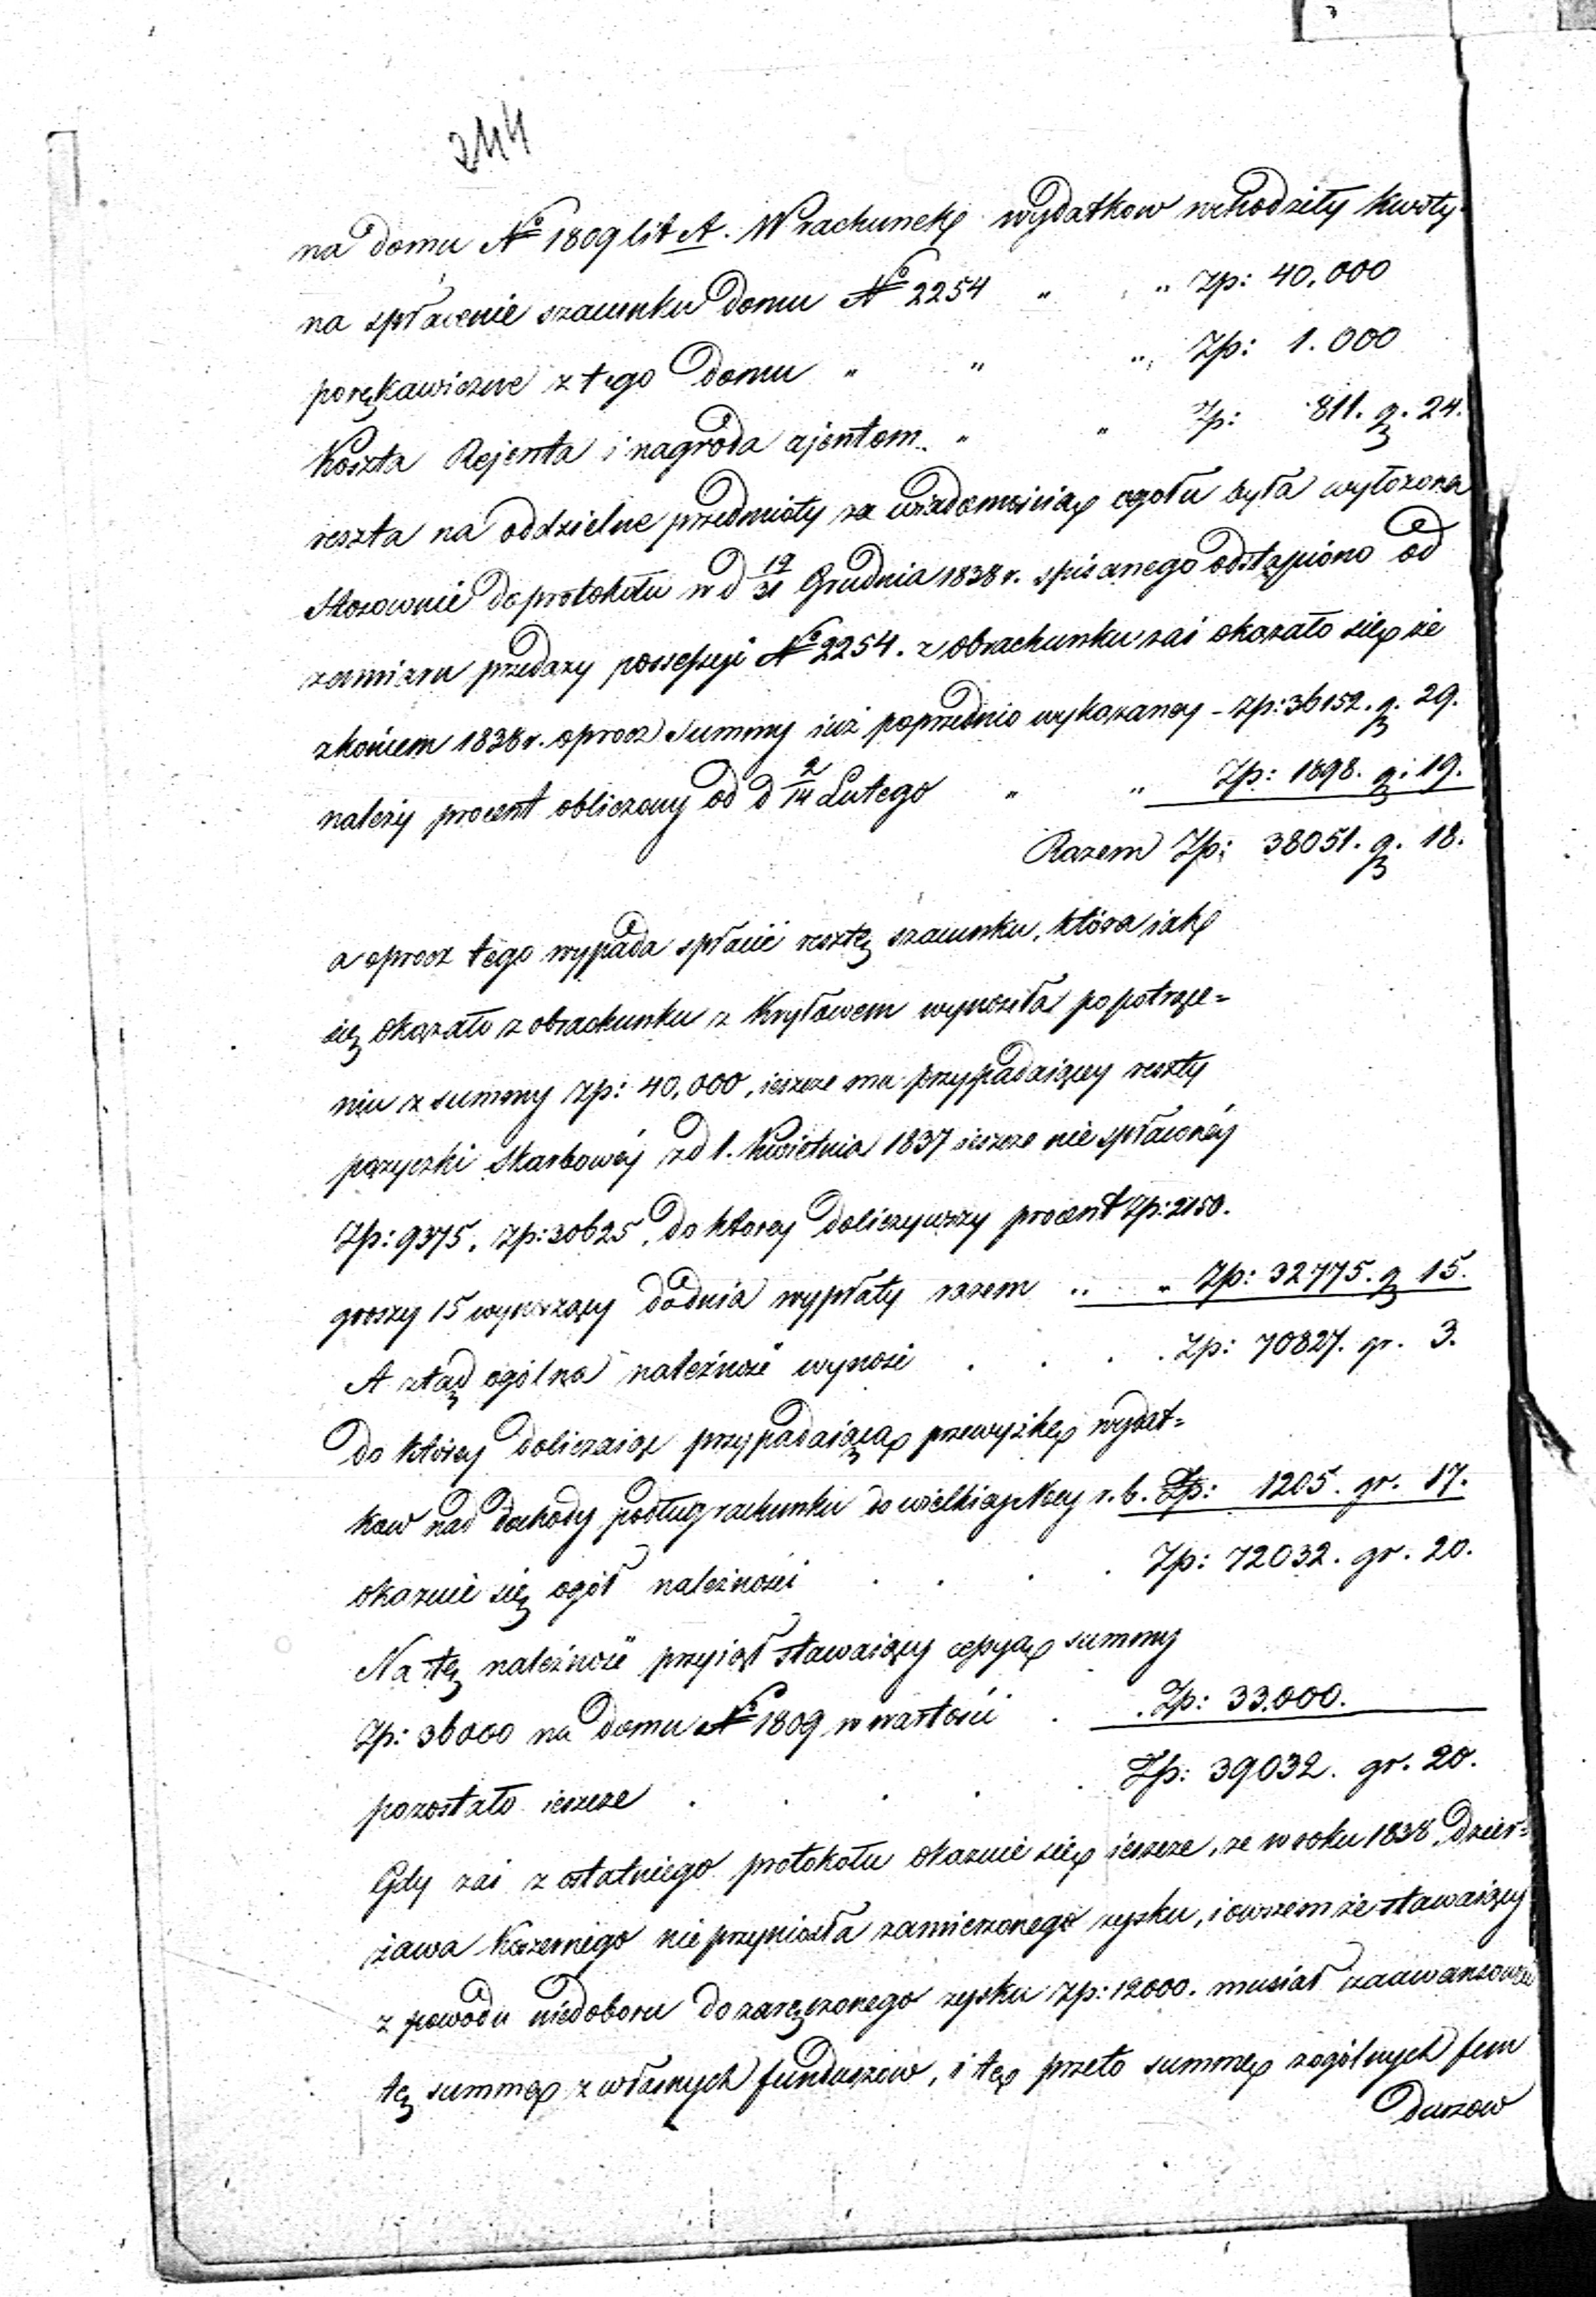 244
na domu № 1809 lit A. W rachunek wydatkow wchodziły kwoty
na spłacenie szacunku domu № 2254 " " Zp: 40,000
porękawiczne z tego domu " " " Zp: 1.000
Koszta Rejenta i nagroda ajentom " " Zp: 811. g. 24.
reszta na oddzielne przedmioty za wiadomością ogołu była wyłożona
Stosownie do protokołu w d 19/31 Grudnia 1838 r. spisanego odstąpiono od
zamiaru przedaży possessyi № 2254. z obrachunku zaś okazało się że
z końcem 1838 r. oprocz summy iuż poprzednio wykazaney - Zp: 36152. g. 29.
należy procent obliczony od d 2/14 Lutego " " Zp: 1898. g: 19.
Razem Zp: 38051. g. 18.
a oprocz tego wypada spłacić resztę szacunku, która iak
się okazało z obrachunku z Kryłowem wynosiła po potrące=
niu z summy Zp: 40,000, ieszcze mu przypadaiącey reszty
pożyczki Skarbowéy z d 1. Kwietnia 1837 ieszcze nie spłaconéy
Zp: 9375, Zp: 30625, do ktorey doliczywszy procent Zp: 2150.
groszy 15 wynoszący do dnia wypłaty razem " " Zp: 32775. g 15.
A ztąd ogólna należność wynosi . . . . Zp: 70827. gr. 3.
Do któréy doliczaiąc przypadaiącą przewyżkę wydat=
kow nad dochody podług rachunku do wielkiej Nocy r. b. Zp: 1205. gr. 17.
okazuie się ogół należności . . . . Zp: 72032. gr. 20.
Na tę należność przyiął stawaiący cessyą summy
Zp: 36000 na domu № 1809 w wartości . . Zp: 33.000.
pozostało ieszcze . . . . . Zp: 39032. gr. 20.
Gdy zaś z ostatniego protokołu okazuie się ieszcze, że w roku 1838, dzier=
żawa Koszernego nie przyniosła zamierzonego zysku, i owszem że stawaiący
z powodu niedoboru do zaręczonego zysku Zp: 12000. musiał zaawansować
tę summę z własnych funduszow, i tę przeto summę z ogólnych fun
duszow